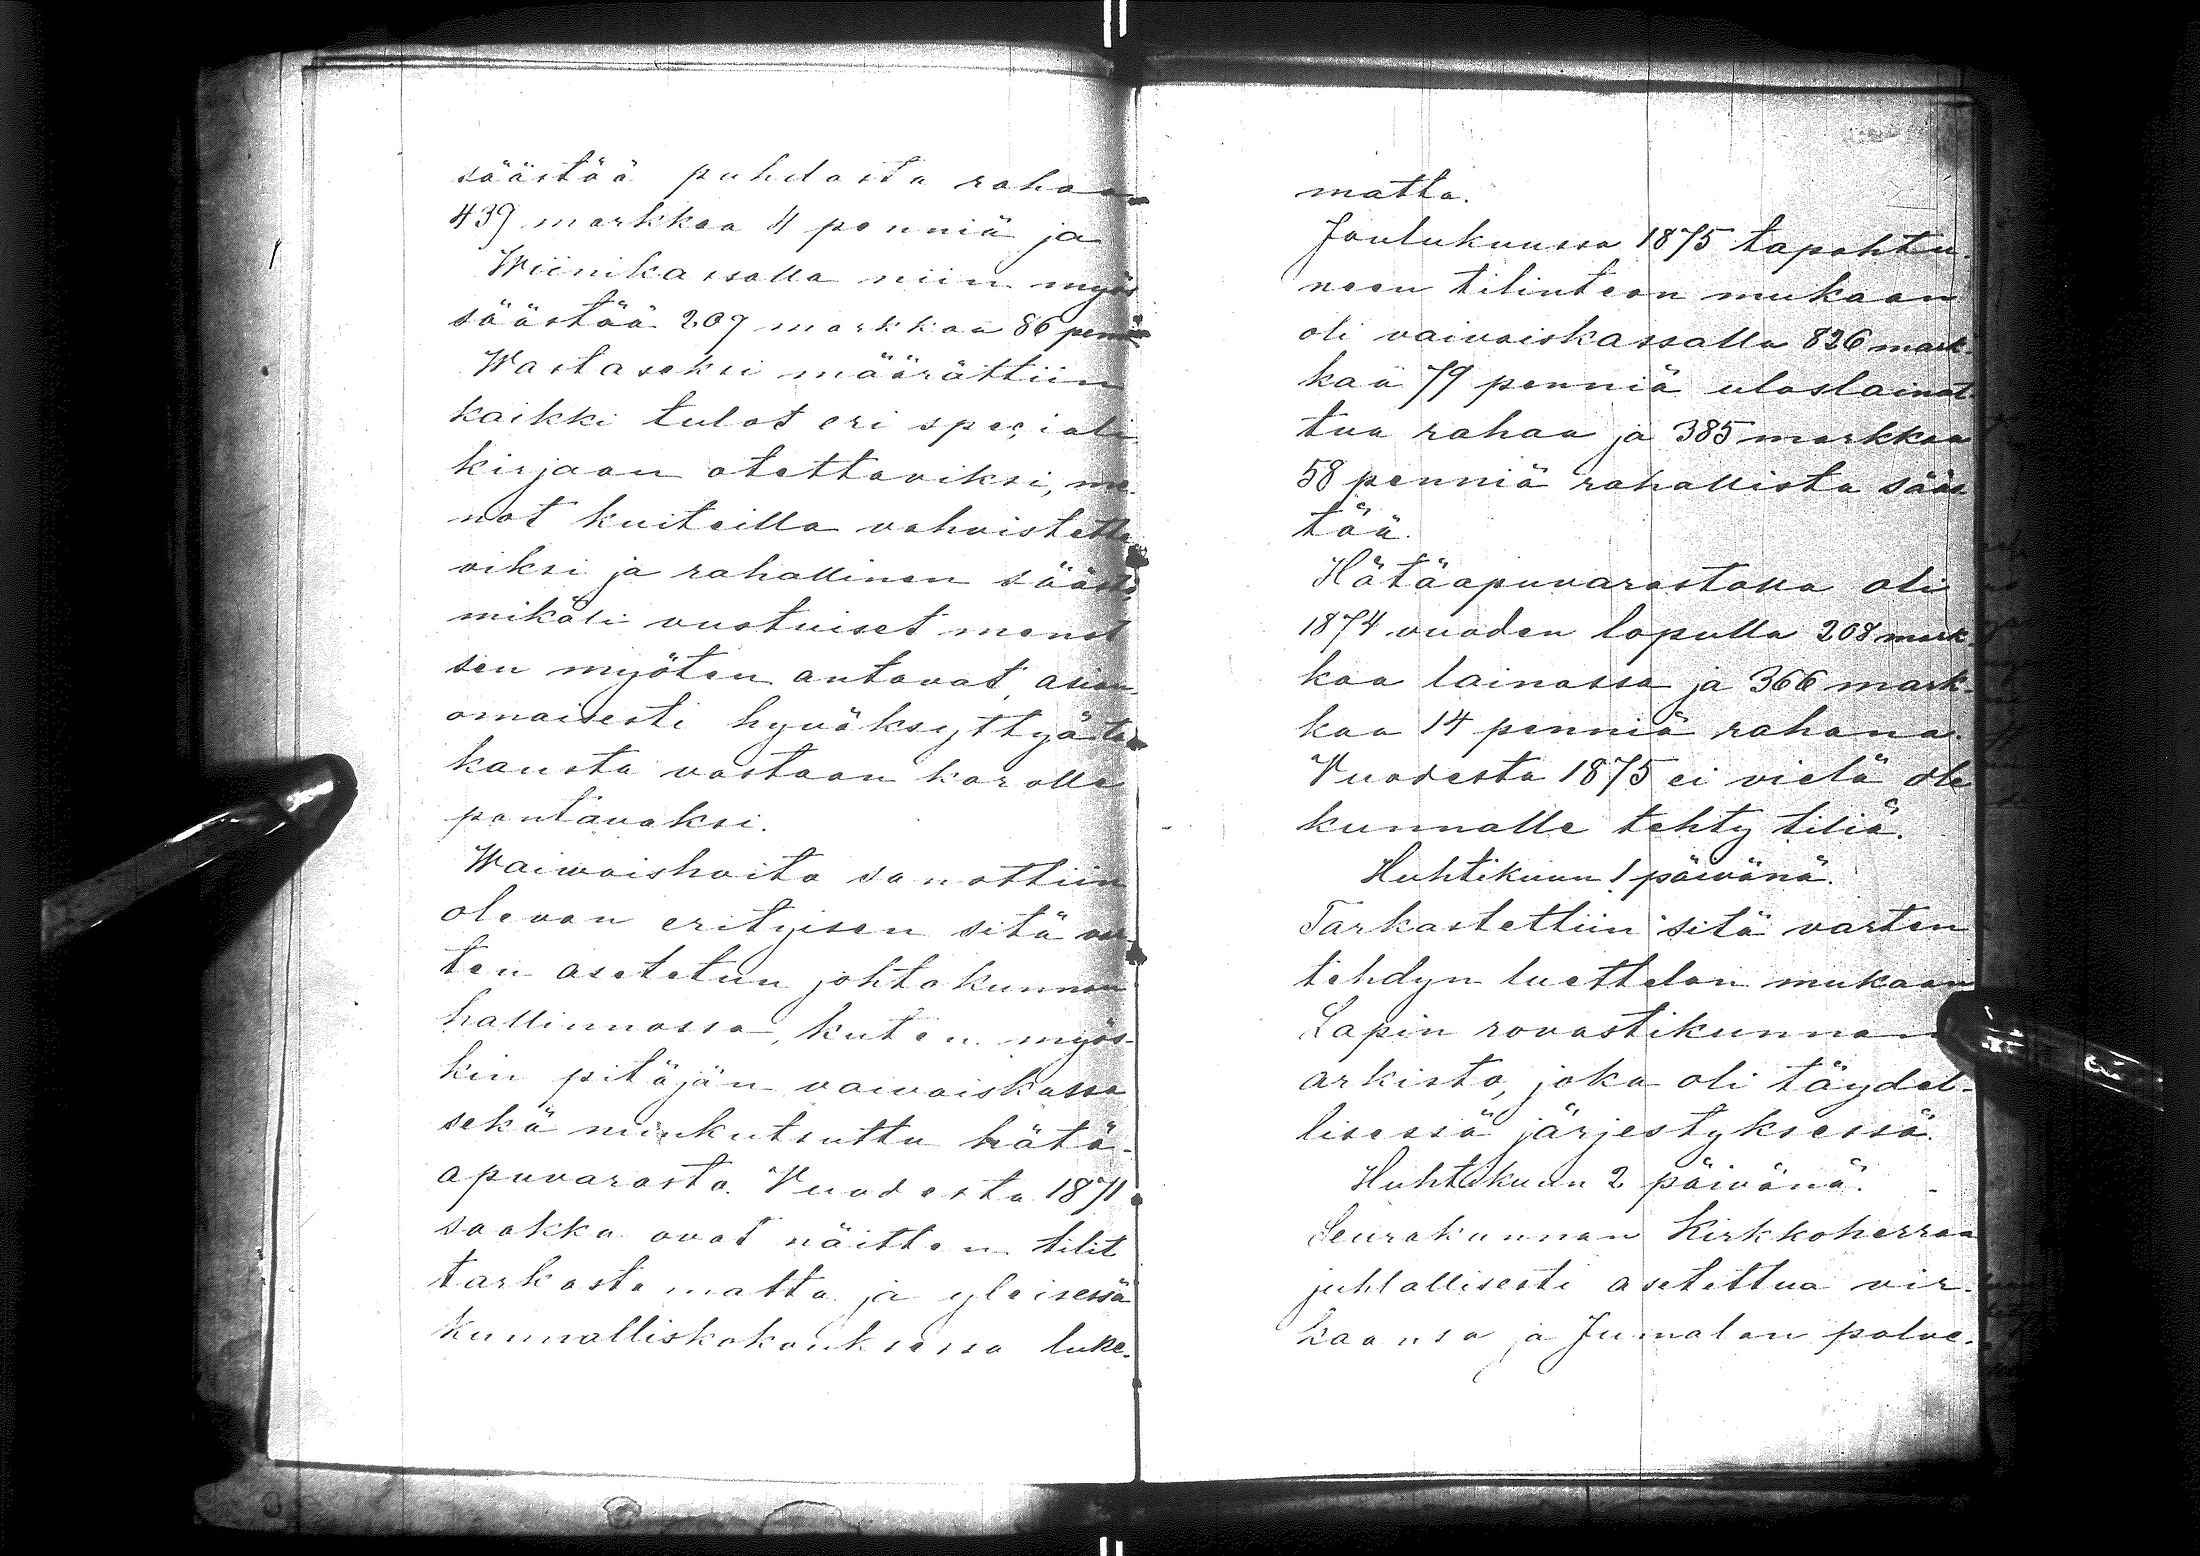 säästöä puhdasta rahaa
439 markkaa 4 penniä ja
Wiinikassalla niin myös
säästöä 209 markkaa 86 penn
Wastaseksi määrättiin
kaikki tulot eri speciali
kirjaan otettaviksi, me-
not kuiteilla vahvistetta
viksi ja rahallinen säästö,
mikäli vuotuiset menot
sen myöten antavat, asian-
omaisesti hyväksyttyä ta-
kausta vastaan korolle
pantavaksi.
Waiwaishoito sanottiin
olevan erityisen sitä var-
ten asetetun johtokunnan
hallinnossa, kuten myös-
kin pitäjän vaivaiskassa
sekä niinkutsuttu hätä-
apuvarasto. Vuodesta 1871
saakka ovat näitten tilit
tarkastamatta ja yleisessä
Kunnalliskokouksessa luke-
matta.
Joulukuussa 1875 tapahtu-
neen tilinteon mukaan
oli vaivaiskassalla 826 mark-
kaa 79 penniä uloslainat-
tua rahaa ja 385 markkaa
58 penniä rahallista sääs
töä.
Hätäapuvarastossa oli
1874 vuoden lopulla 208 mark-
kaa lainassa ja 366 mark-
kaa 14 penniä rahana.
Vuodesta 1875 ei vielä ole
kunnalle tehty tiliä.
Huhtikuun 1 päivänä.
Tarkastettiin sitä varten
tehdyn luettelon mukaan
Lapin rovastikunnan
arkisto, joka oli täydel-
lisessä järjestyksessä.
Huhtikuun 2 päivänä.
Seurakunnan Kirkkoherraa
juhlallisesti asetettua vir-
kaansa ja Jumalan palve-